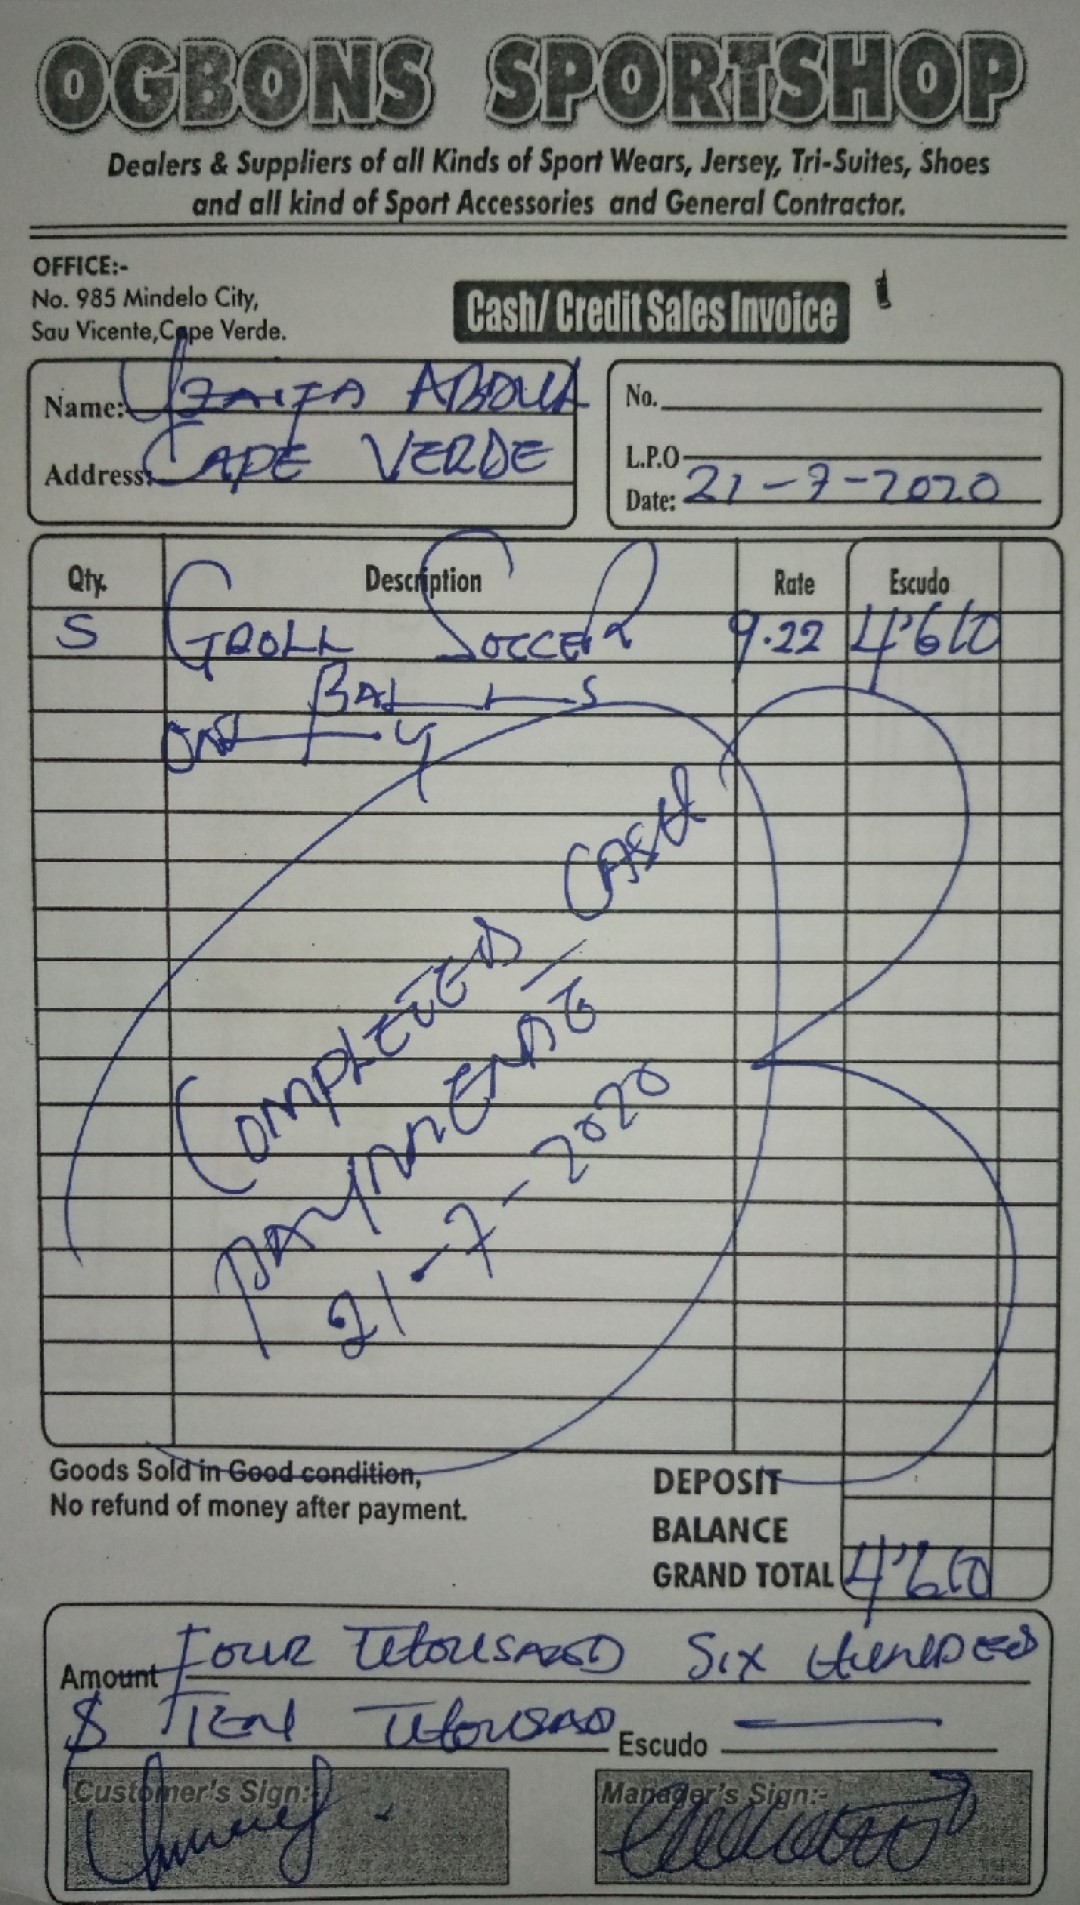 OGBONS SPORTSHOP
Dealers & Suppliers of all Kinds of Sport Wears, Jersey, Tri-Suites, Shoes
and all kind of Sport Accessories and General Contractor.
OFFICE:-
No. 985 Mindelo City,
Sau Vicente,Cape Verde.
Cash/ Credit Sales Invoice
Name: ABDUL
Address: CAPE VERDE
No.
L.P.O
Date: 21-7-2020
Qty. Description Rate Escudo
5 SOCCER 9.22 4'610
BALLS
ONLY
COMPLETED CASH
PAYMENT
21-7-2020
Goods Sold in Good condition,
No refund of money after payment.
DEPOSIT
BALANCE
GRAND TOTAL 4'610
Amount FOUR THOUSAND SIX HUNDRED
$ TEN THOUSAND Escudo
Customer's Sign:-
Manager's Sign:-